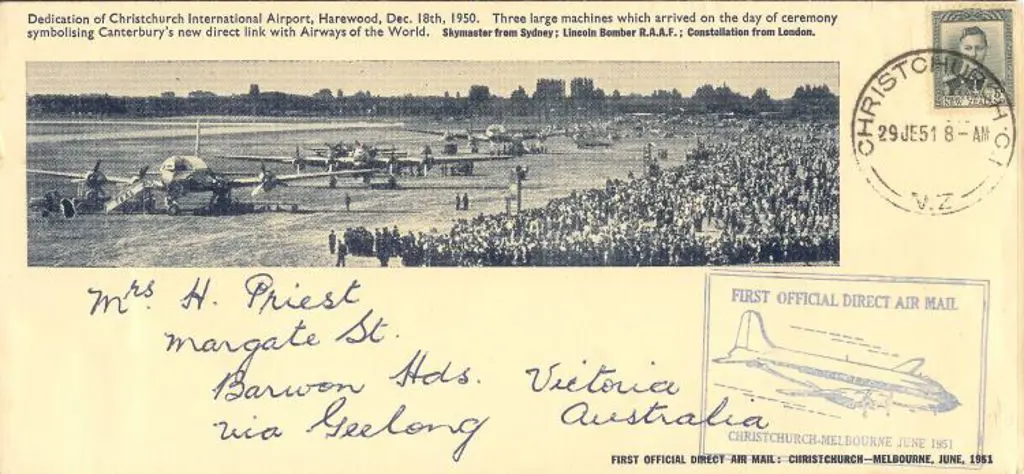 Dedication of Christchurch International Airport, Harewood, Dec. 18th, 1950. Three large machines which arrived on the day of ceremony
symbolising Canterbury's new direct link with Airways of the World. Skymaster from Sydney; Lincoln Bomber R.A.A.F.; Constellation from London.
CHRISTCHURCH C1
29 JE51 8-AM
N.Z
NEW ZEALAND
Mrs H. Priest
Margate St.
Barwon Hds. Victoria
via Geelong Australia
FIRST OFFICIAL DIRECT AIR MAIL
CHRISTCHURCH-MELBOURNE JUNE 1951
FIRST OFFICIAL DIRECT AIR MAIL: CHRISTCHURCH—MELBOURNE, JUNE, 1951